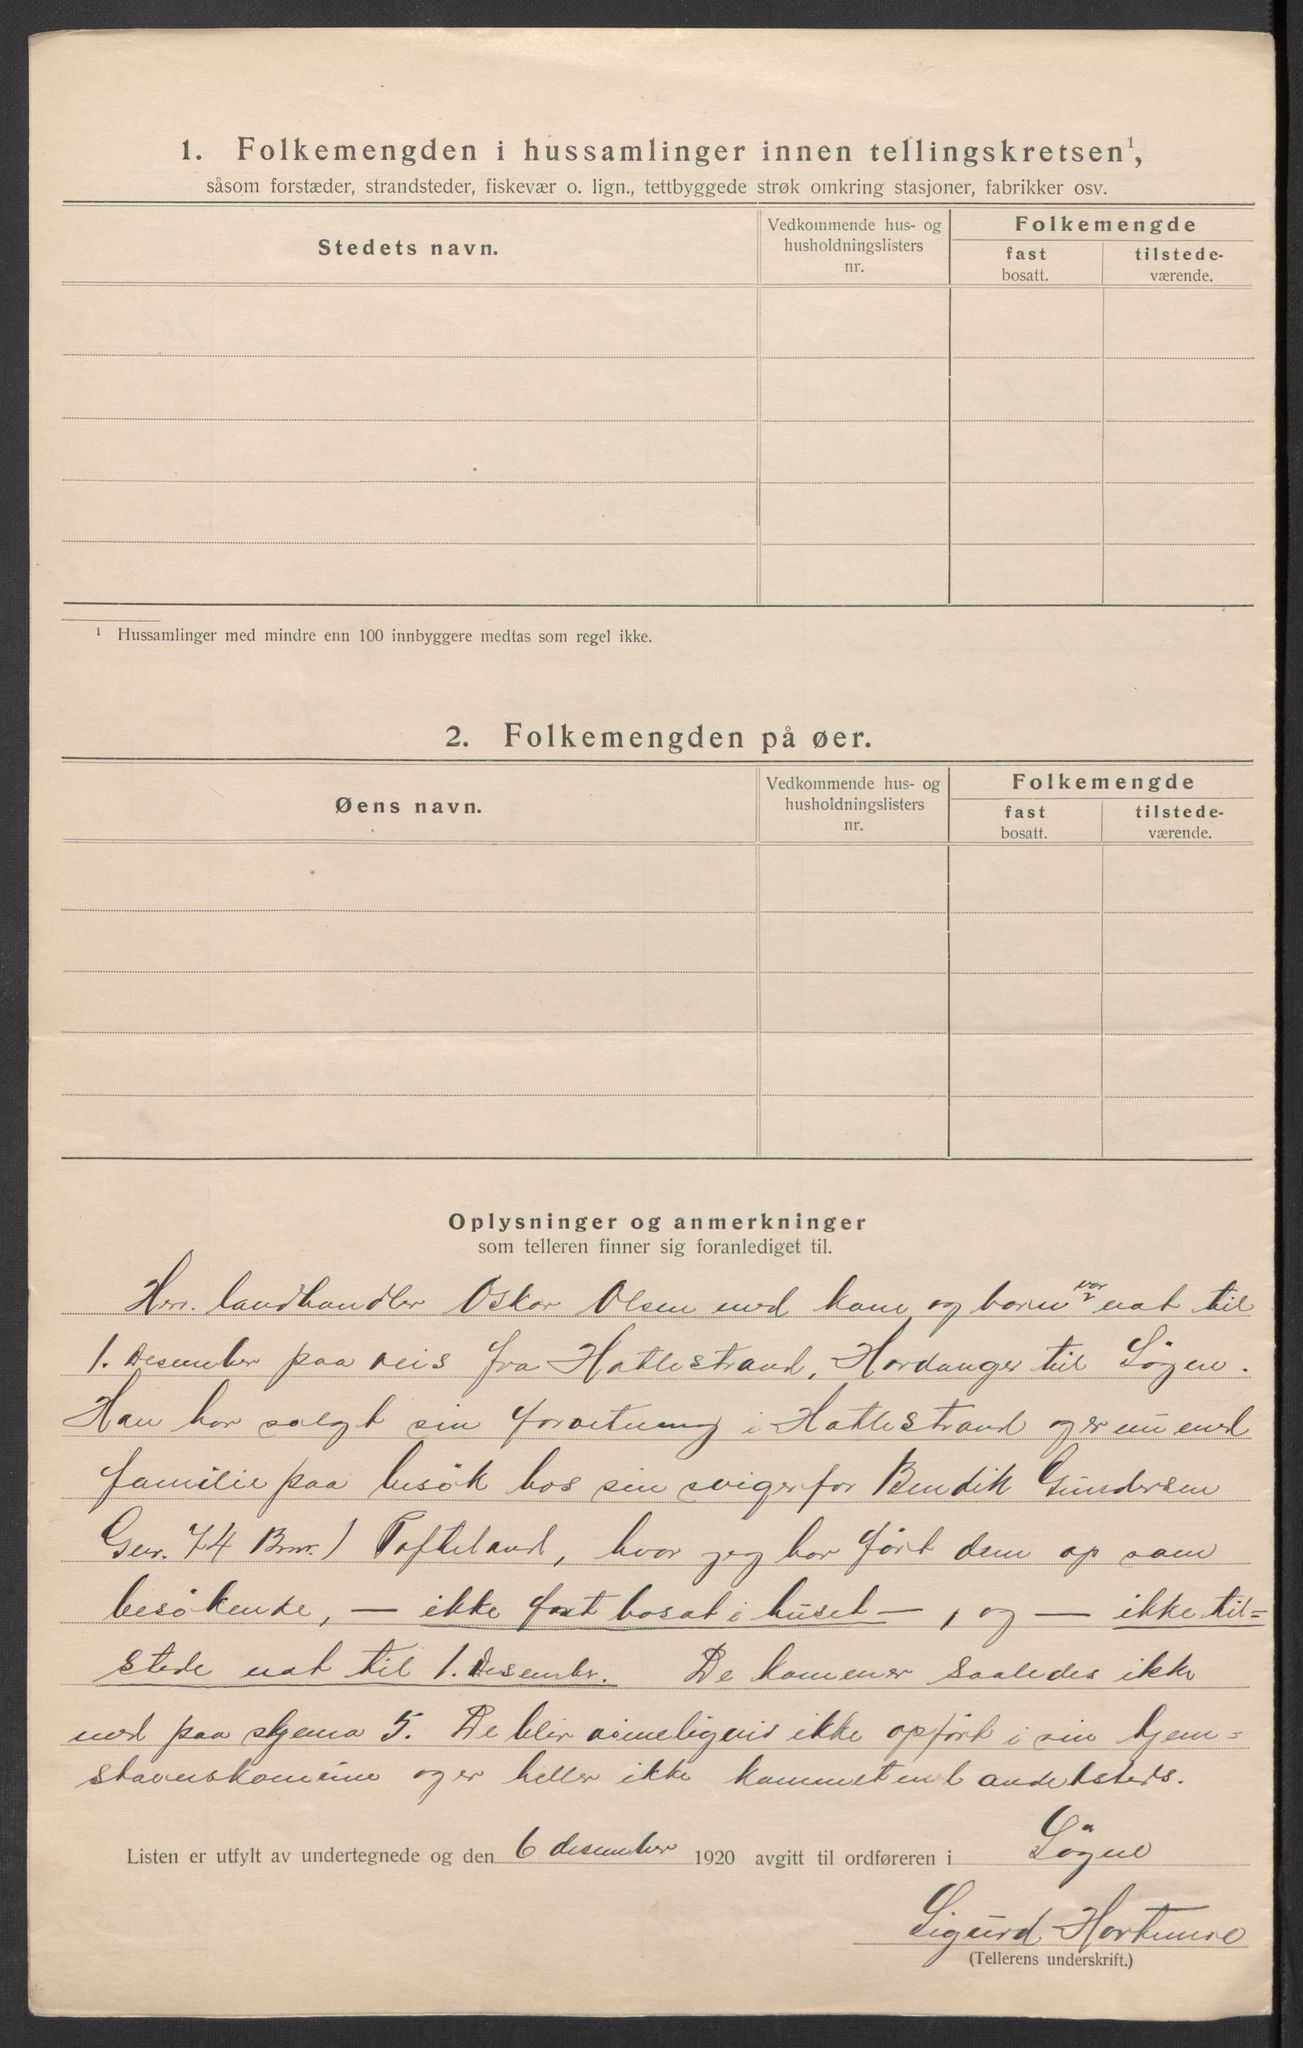 1. Folkemengden i hussamlinger innen tellingskretsen¹,
såsom forstæder, strandsteder, fiskevær o. lign., tettbyggede strøk omkring stasjoner, fabrikker osv.
Stedets navn.
Vedkommende hus- og
husholdningslisters
nr.
Folkemengde
fast
bosatt.
tilstede-
værende.
¹ Hussamlinger med mindre enn 100 innbyggere medtas som regel ikke.
2. Folkemengden på øer.
Øens navn.
Vedkommende hus- og
husholdningslisters
nr.
Folkemengde
fast
bosatt.
tilstede-
værende.
Oplysninger og anmerkninger
som telleren finner sig foranlediget til.
Herr. landhandler Oskar Olsen med kone og barn var nat til
1. desember paa reis fra Hatlestrand, Hardanger til Søgne.
Han har solgt sin forretning i Hatlestrand og er nu med
familie paa besøk hos sin svigerfar Bendik Gundersen
Gnr. 74 Bnr. 1 Tofteland, hvor jeg har ført dem op som
besøkende, — ikke fast bosat i huset —, og — ikke til=
stede nat til 1. desember. De kommer saaledes ikke
med paa skjema 5. De blir rimeligvis ikke opført i sin hjem=
stavnskomune og er heller ikke kommet med andetsteds.
Listen er utfylt av undertegnede og den 6 desember 1920 avgitt til ordføreren i Søgne
Sigurd
(Tellerens underskrift.)